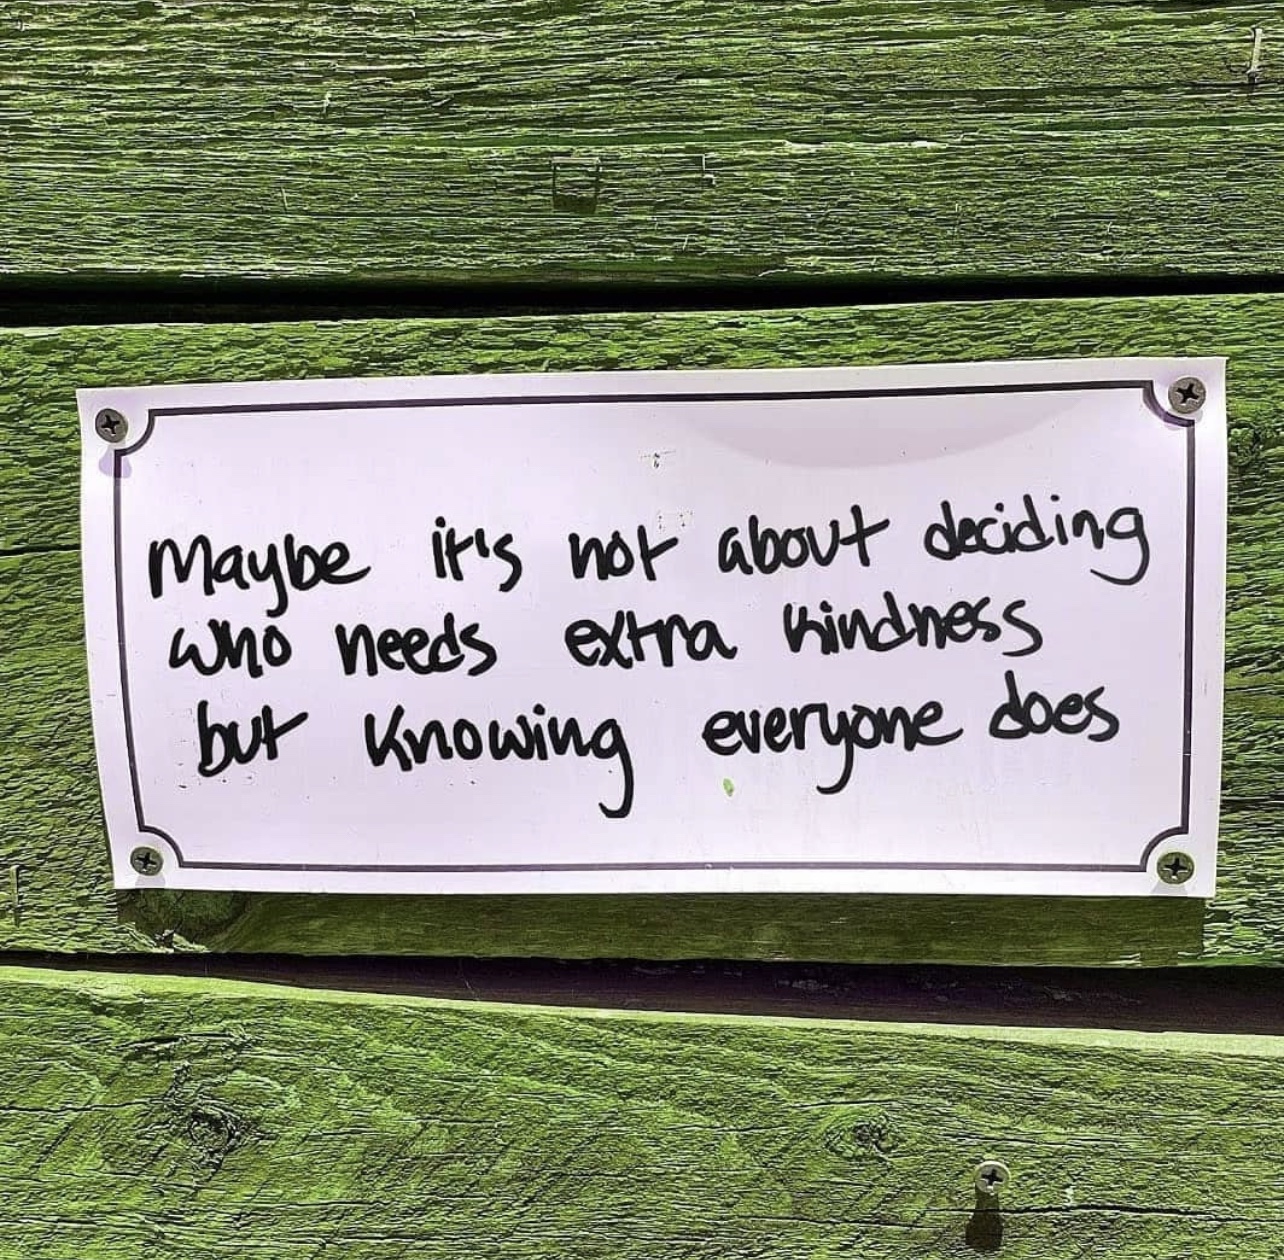 Maybe it's not about deciding
who needs extra kindness
but knowing everyone does